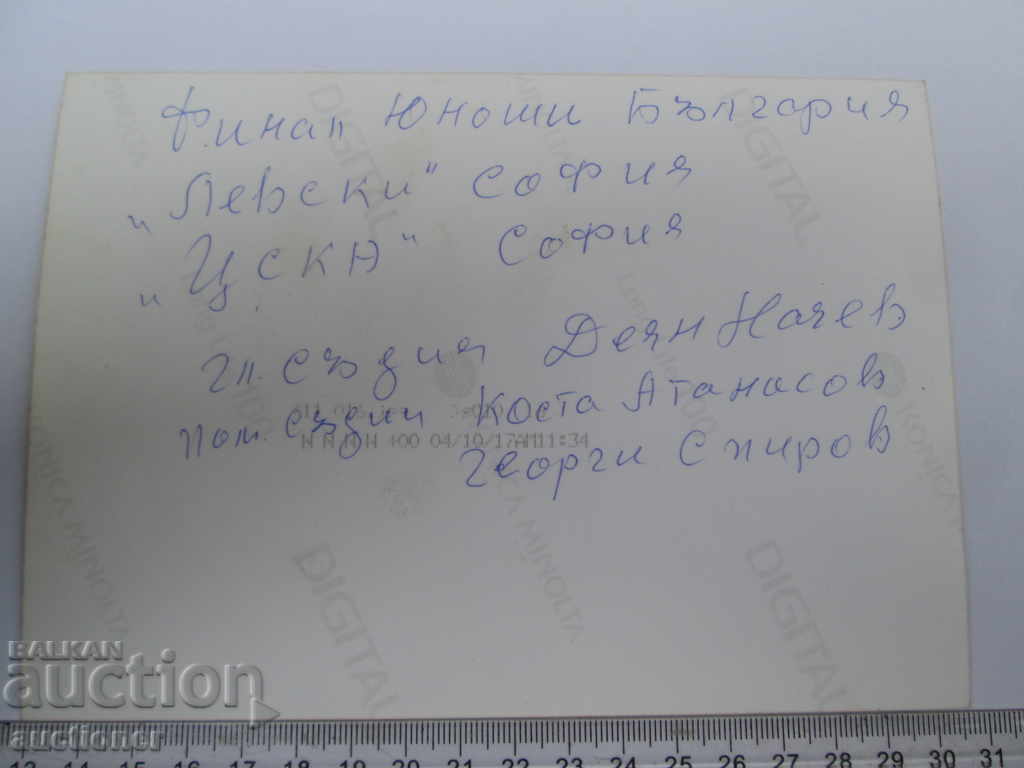 Финал Юноши България
„Левски" София
„ЦСКА" София
гл. съдия Деян Начев
пом. съдии Коста Атанасов
N N N N 400 04/10/17AM11:34
Георги Спиров
DIGITAL
DIGITAL
KONICA MINOLTA
KONICA MINOLTA
KONICA MINOLTA
DIGITAL
DIGITAL
BALKAN
auction
auctioner
13 14 15 16 17 18 19 20 21 22 23 24 25 26 27 28 29 30 31